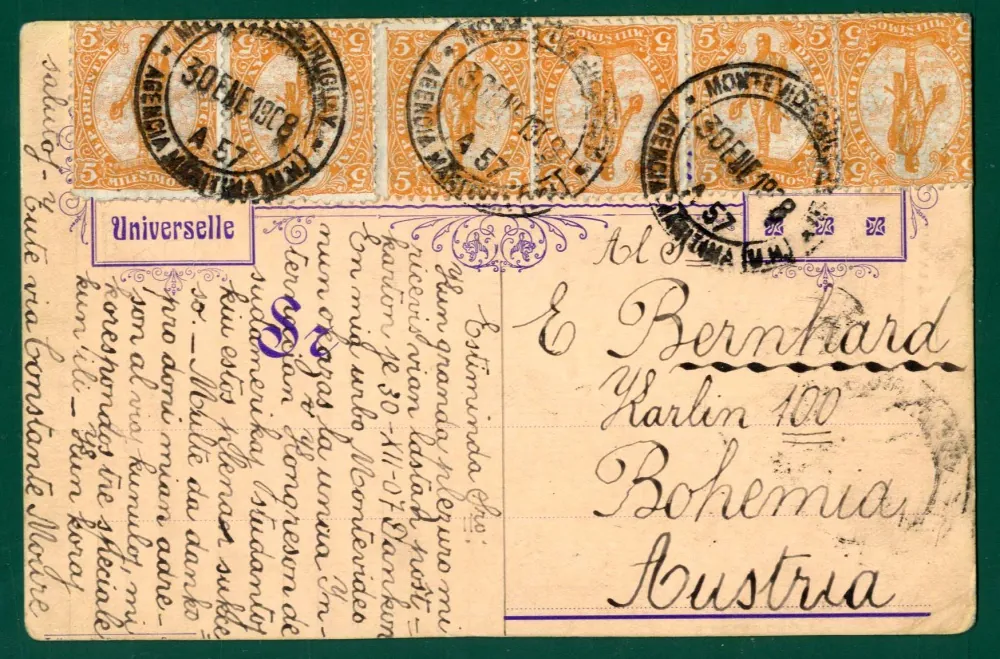 5 5 5 5 5 5 5 5 5 5 5 5
MILESIMOS
MONTEVIDEO URUGUAY
30 ENE 1908
A 57
AGENCIA MARITIMA (U.M.)
MONTEVIDEO URUGUAY
30 ENE 1908
A 57
AGENCIA MARITIMA
MONTEVIDEO URUGUAY
30 ENE 1908
A 57
AGENCIA MARITIMA (U.M.)
Universelle
Al S
Sr
E Bernhard
Karlin 100
Bohemia
Austria
Estiminda Sro:
Kun granda plezuro mi
ricevis vian lastan post=
karton je 30-XII-07 Dankon
En mia urbo Montevideo
nun okazas la unua In-
ternacian Kongreson de
sudamerikaj Estudantoj
kiu estos plenan sukse
so. – Milte da danko
pro doni mian adre=
son al viaj kunuloj, mi
korespondos tre speciale
kun ili – Kun koraj
salutoj - y
Tute via Constante Moure